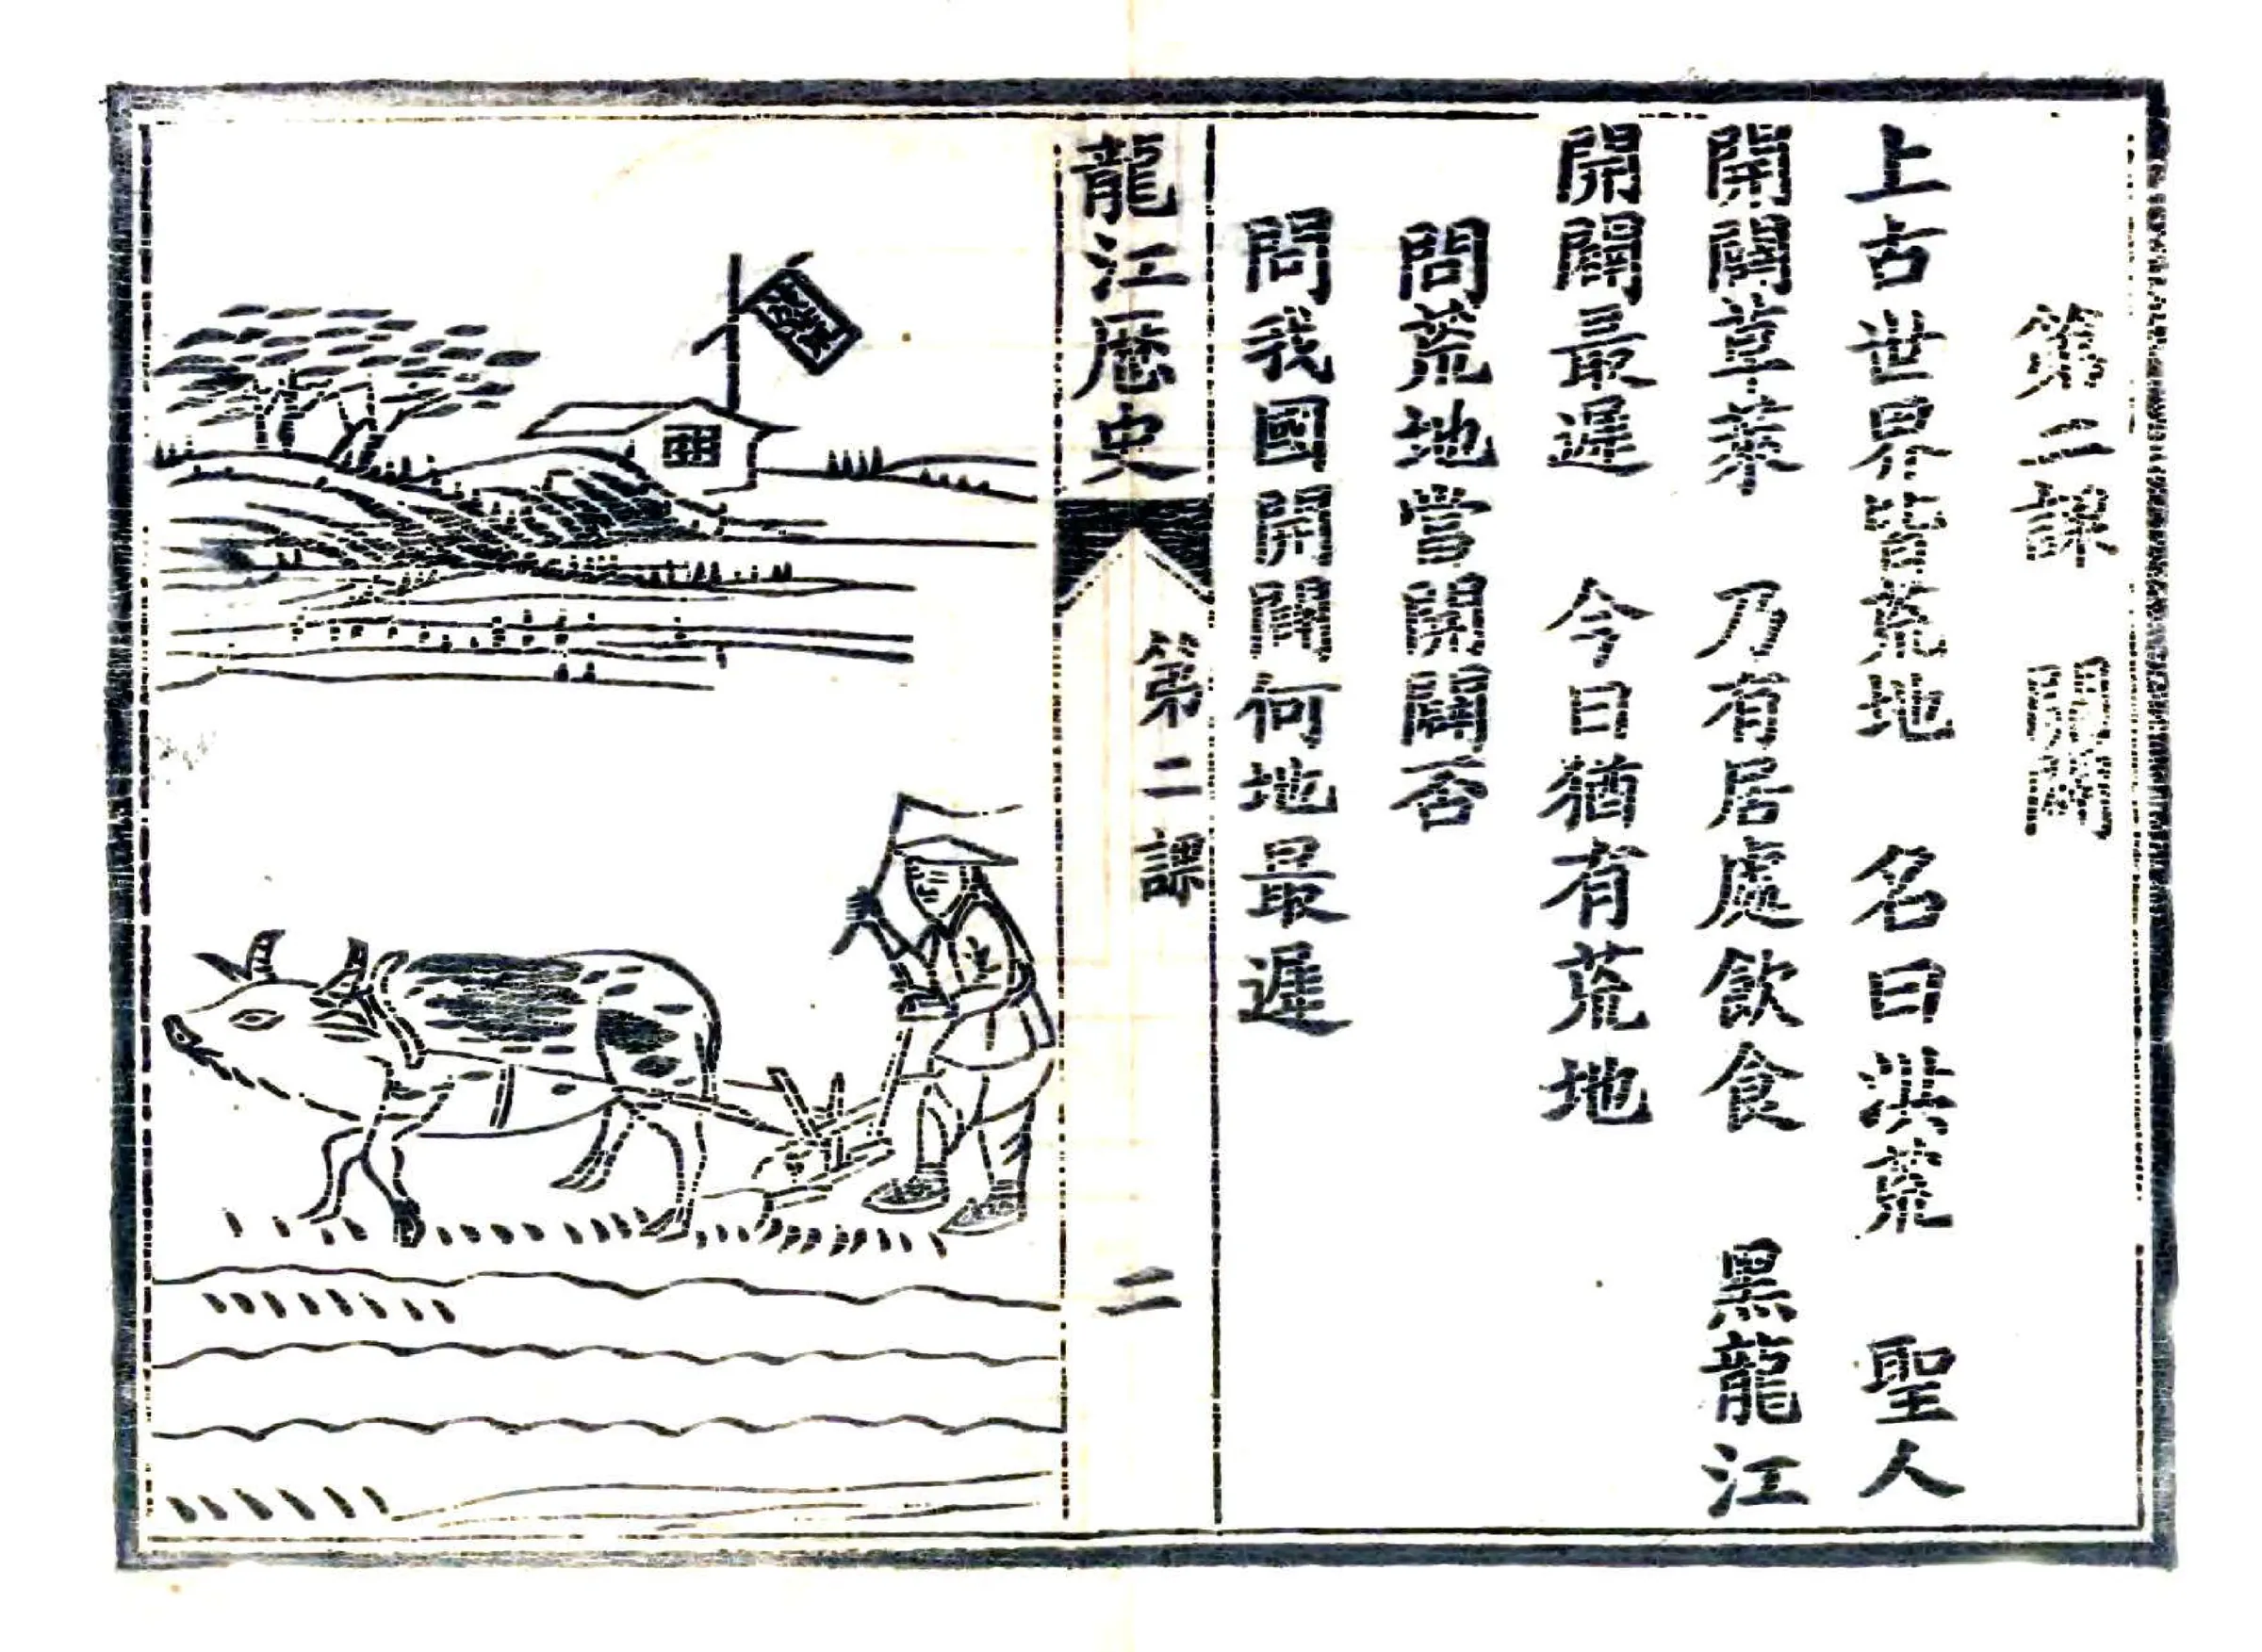 第二課 開闢
上古世界皆荒地 名曰洪荒 聖人
開闢草萊 乃有居處飲食 黑龍江
開闢最遲 今日猶有荒地
問荒地當開闢否
問我國開闢何地最遲
龍江歷史 第二課 二